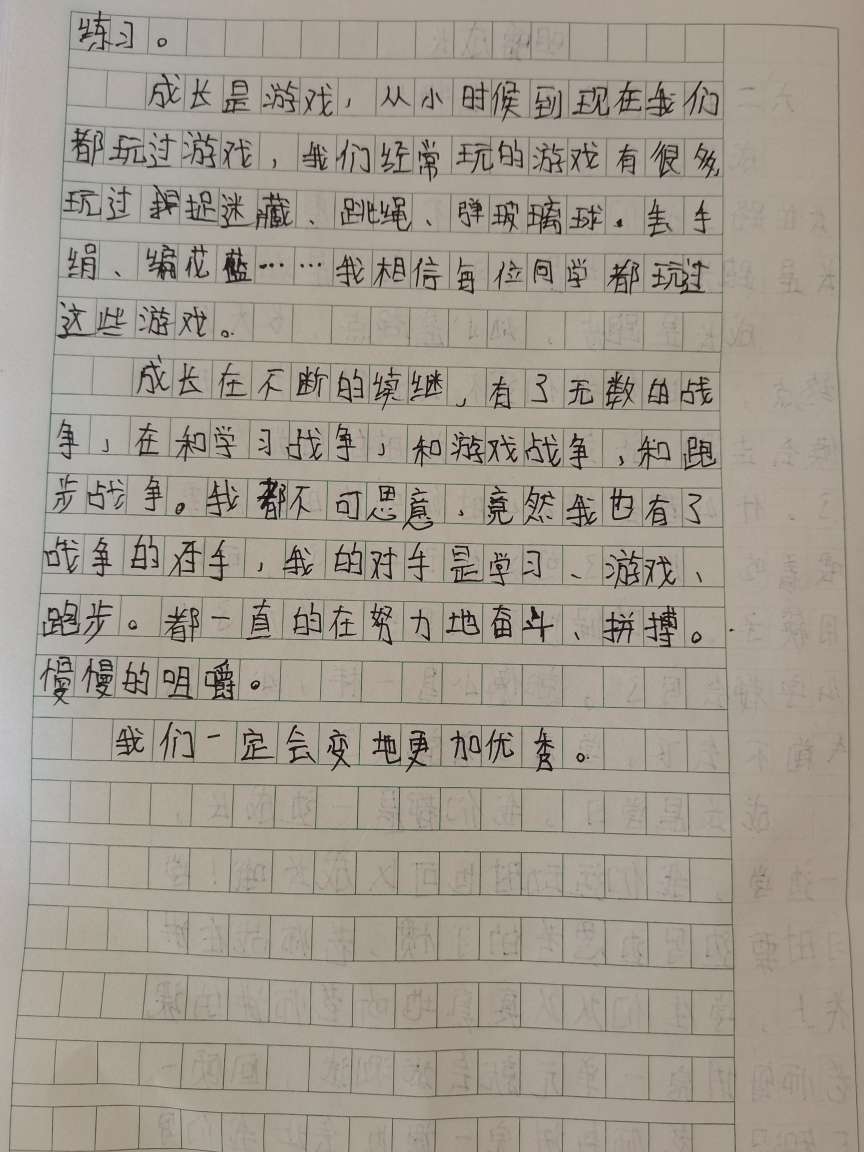 练习。
成长是游戏，从小时候到现在我们
都玩过游戏，我们经常玩的游戏有很多，
玩过捉迷藏、跳绳、弹玻璃球、丢手
绢、编花蓝……我相信每位同学都玩过
这些游戏。
成长在不断的续继，有了无数的战
争，在和学习战争，和游戏战争，和跑
步战争。我都不可思意，竟然我也有了
战争的对手，我的对手是学习、游戏、
跑步。都一直的在努力地奋斗、拼搏。
慢慢的咀嚼。
我们一定会变地更加优秀。